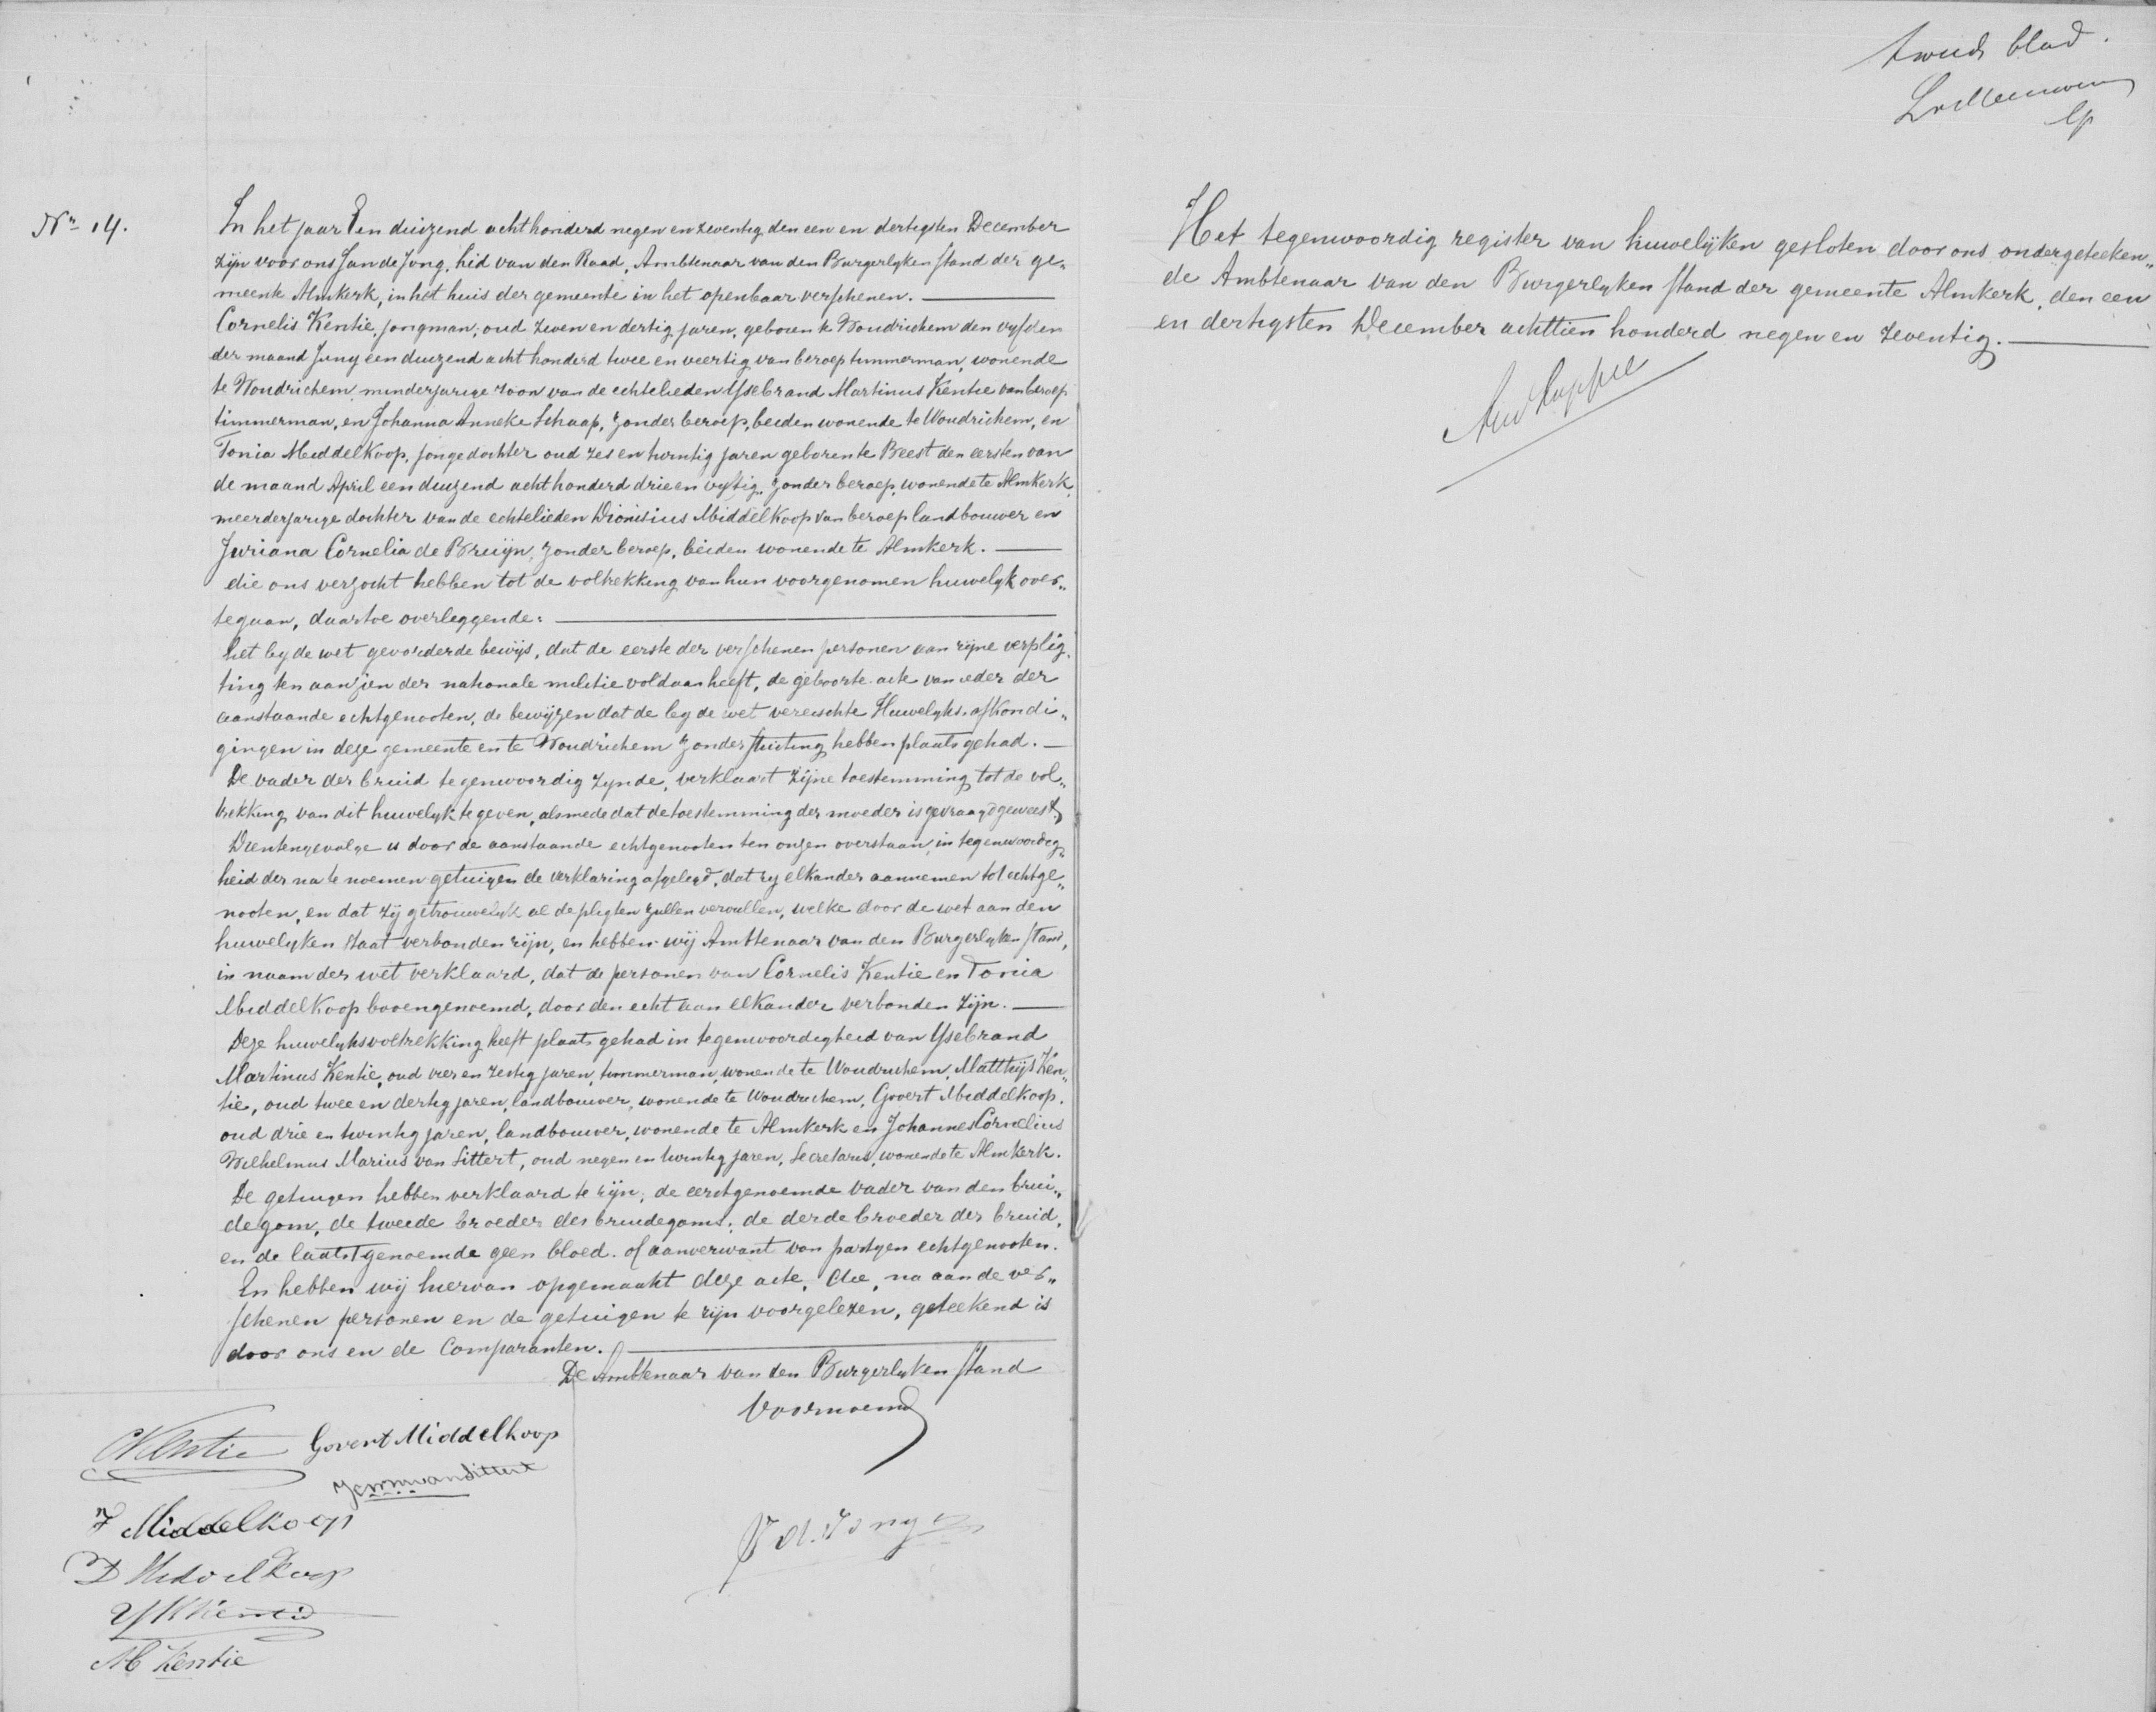 tweede blad.
Nr 14.
In het jaar Een duizend achthonderd negen en zeventig den een en dertigsten December
zijn voor ons Jan de Jong, Lid van den Raad, Ambtenaar van den Burgerlyken stand der ge„
meente Almkerk, in het huis der gemeente in het openbaar verschenen. —
Cornelis Kentie, jongman, oud zeven en dertig jaren, geboren te Woudrichem den vyfden
der maand Juny een duizend acht honderd twee en veertig van beroep timmerman, wonende
te Woudrichem, minderjarige zoon van de echtelieden Ysebrand Martinus Kentie van beroep
timmerman, en Johanna Anneke Schaap, zonder beroep, beiden wonende te Woudrichem, en
Tonia Middelkoop, jongedochter oud zes en twintig jaren geboren te Beest den eersten van
de maand April een duizend acht honderd drie en vyftig, zonder beroep, wonende te Almkerk,
meerderjarige dochter van de echtelieden Dionisius Middelkoop van beroep landbouwer en
Juriana Cornelia de Bruijn, zonder beroep, beiden wonende te Almkerk. —
die ons verzocht hebben tot de voltrekking van hun voorgenomen huwelyk over„
tegaan, daartoe overleggende: —
het by de wet gevorderde bewijs, dat de eerste der verschenen personen aan zijne verplig„
ting ten aanzien der nationale militie voldaan heeft, de geboorte acte van ieder der
aanstaande echtgenooten, de bewijzen dat de by de wet vereischte Huwelyks-afkondi„
gingen in deze gemeente en te Woudrichem zonder stuiting hebben plaats gehad. —
De vader der bruid tegenwoordig zynde, verklaart zijne toestemming tot de vol„
trekking van dit huwelyk te geven, alsmede dat de toestemming der moeder is gevraagd geweest,
Dientengevolge is door de aanstaande echtgenooten ten onzen overstaan, in tegenwoordig„
heid der na te noemen getuigen de verklaring afgelegd, dat zy elkander aannemen tot echtge„
nooten, en dat zij getrouwelyk al de pligten zullen vervullen, welke door de wet aan den
huwelyken staat verbonden zijn, en hebben wij Ambtenaar van den Burgerlyken stand,
in naam der wet verklaard, dat de personen van Cornelis Kentie en Tonia
Middelkoop bovengenoemd, door den echt aan elkander verbonden zijn. —
Deze huwelyksvoltrekking heeft plaats gehad in tegenwoordigheid van Ysebrand
Martinus Kentie, oud vier en zestig jaren, timmerman, wonende te Woudrichem, Matthijs Ken„
tie, oud twee en dertig jaren, landbouwer, wonende te Woudrichem, Govert Middelkoop,
oud drie en twintig jaren, landbouwer, wonende te Almkerk en Johannes Cornelius
Wilhelmus Marius van Sittert, oud negen en twintig jaren, Secretaris, wonende te Almkerk.
De getuigen hebben verklaard te zijn, de eerstgenoemde vader van den brui„
degom, de tweede broeder des bruidegoms, de derde broeder der bruid,
en de laatstgenoemde geen bloed- of aanverwant van partyen echtgenooten.
En hebben wij hiervan opgemaakt deze acte, die, na aan de ver„
schenen personen en de getuigen te zijn voorgelezen, geteekend is
door ons en de Comparanten. —
De Ambtenaar van den Burgerlyken stand
Voornoemd
CKentie
Govert Middelkoop
JCWMvanSittert
T Middelkoop
D Middelkoop
YMKentie
M Kentie
J d. Jong
Het tegenwoordig register van huwelijken gesloten door ons ondergeteeken„
de Ambtenaar van den Burgerlyken stand der gemeente Almkerk, den een
en dertigsten December achttien honderd negen en zeventig. —